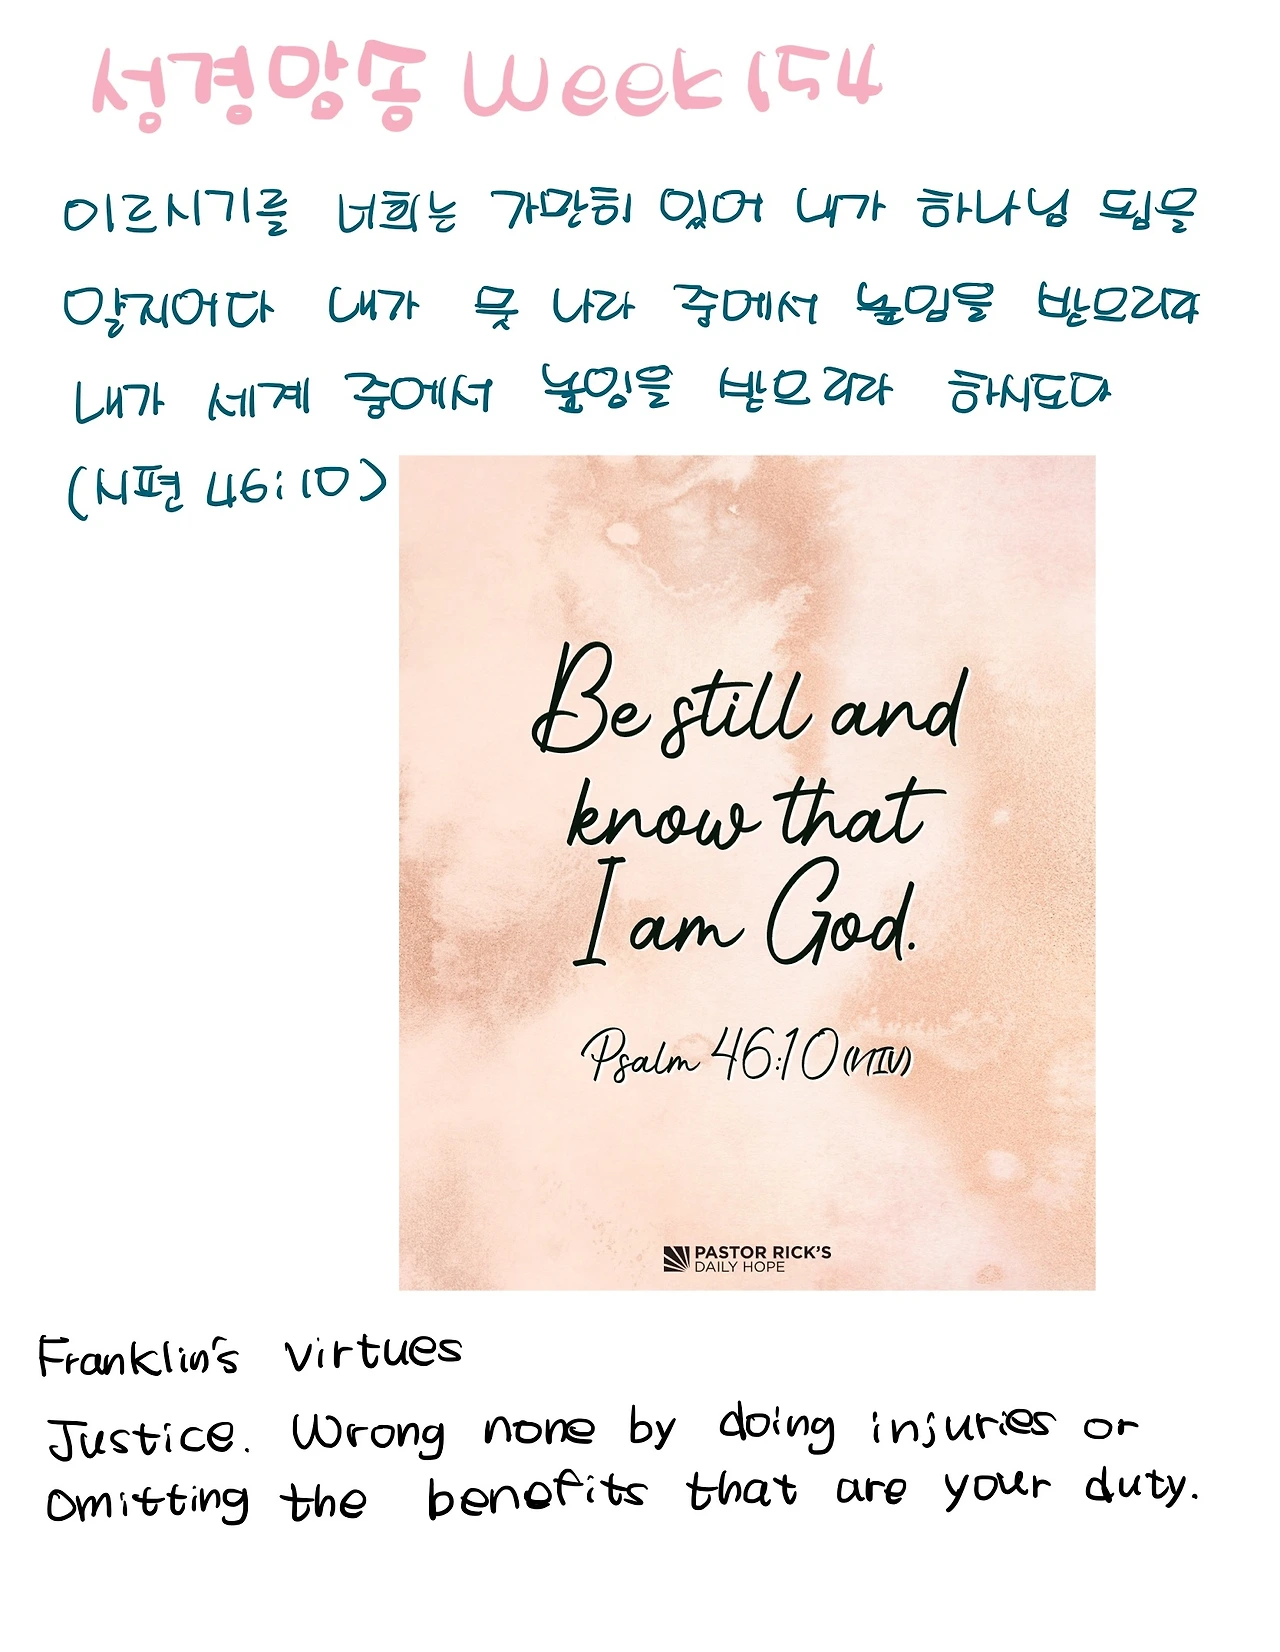 성경암송 Week 154
이르시기를 너희는 가만히 있어 내가 하나님 됨을
알지어다 내가 뭇 나라 중에서 높임을 받으리라
내가 세계 중에서 높임을 받으리라 하시도다
(시편 46:10)
Be still and
know that
I am God.
Psalm 46:10 (NIV)
PASTOR RICK'S
DAILY HOPE
Franklin's virtues
Justice. Wrong none by doing injuries or
omitting the benefits that are your duty.